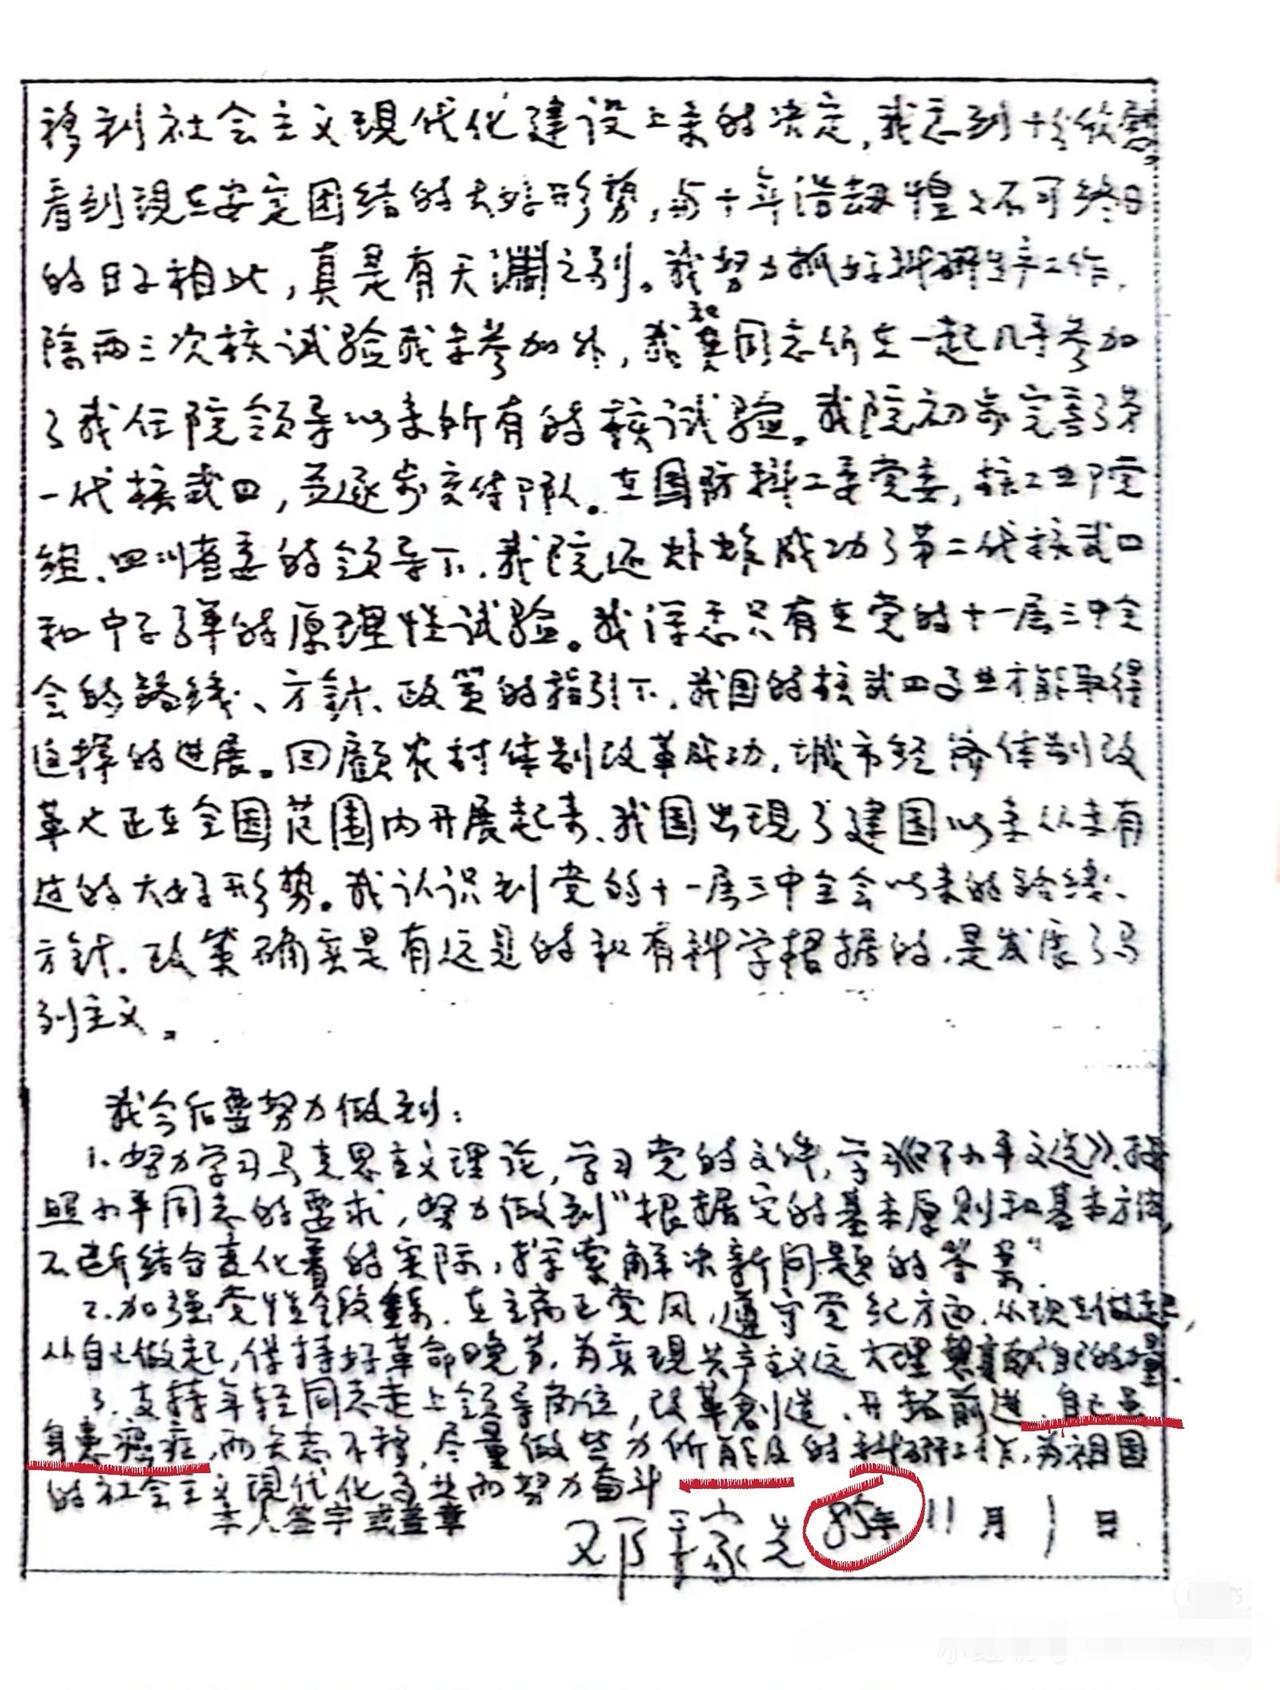 移到社会主义现代化建设上来的决定，我感到十分欣慰。
看到现在安定团结的大好形势，与十年浩劫惶々不可终日
的日子相比，真是有天渊之别。我努力抓好科研生产工作，
除两三次核试验我未参加外，我和其同志们在一起几乎参加
了我任院领导以来所有的核试验。我院初步完善了第
一代核武口，并逐步交付部队。在国防科工委党委，核工业部党
组、四川省委的领导下，我院还爆炸成功了第二代核武口
和中子弹的原理性试验。我深感只有在党的十一届三中全
会的路线、方针、政策的指引下，我国的核武口事业才能取得
这样的进展。回顾农村体制改革成功，城市经济体制改
革也正在全国范围内开展起来，我国出现了建国以来从未有
过的大好形势。我认识到党的十一届三中全会以来的路线、
方针、政策确实是有远见的和有科学根据的，是发展了马
列主义。
我今后要努力做到：
1. 努力学习马克思主义理论，学习党的文件，学习《邓小平文选》，按
照小平同志的要求，努力做到“根据它的基本原则和基本方法，
不断结合变化着的实际，探索解决新问题的答案”
2. 加强党性锻炼，在主端正党风，遵守党纪方面，从现在做起，
从自己做起，保持好革命晚节，为实现共产主义远大理想贡献自己的力量。
3. 支持年轻同志走上领导岗位，改革创造，开拓前进，自己虽
身患癌症，而矢志不移，尽量做些力所能及的科研工作，为祖国
的社会主义现代化事业而努力奋斗
本人签字或盖章
邓稼先 85年11月1日
小红书号